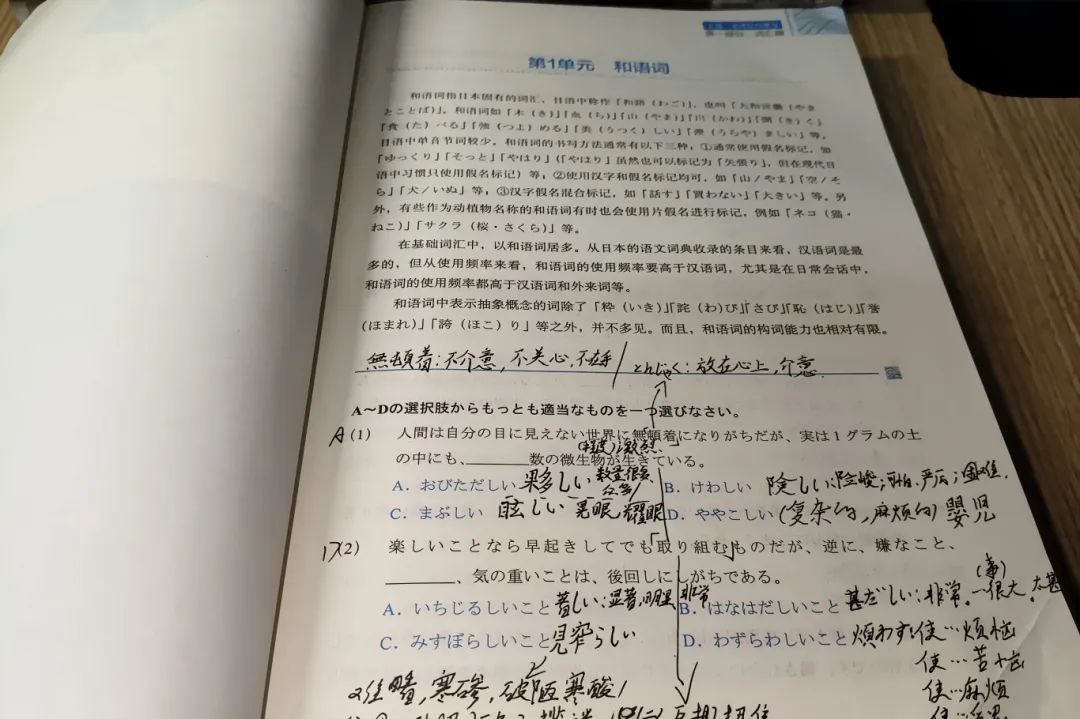 第1单元 和语词
和语词指日本固有的词汇，日语中称作「和語（わご）」，也叫「大和言葉（やま
とことば）」。和语词如「木（き）」「血（ち）」「山（やま）」「川（かわ）」「聞（き）く」
「食（た）べる」「強（つよ）める」「美（うつく）しい」「羨（うらや）ましい」等。
日语中单音节词较少。和语词的书写方法通常有以下三种：①通常使用假名标记，如
「ゆっくり」「そっと」「やはり」（「やはり」虽然也可以标记为「矢張り」，但在现代日
语中习惯只使用假名标记）等；②使用汉字和假名标记均可，如「山／やま」「空／そ
ら」「犬／いぬ」等；③汉字假名混合标记，如「話す」「買わない」「大きい」等。另
外，有些作为动植物名称的和语词有时也会使用片假名进行标记，例如「ネコ（猫・
ねこ）」「サクラ（桜・さくら）」等。
在基础词汇中，以和语词居多。从日本的语文词典收录的条目来看，汉语词是最
多的，但从使用频率来看，和语词的使用频率要高于汉语词，尤其是在日常会话中，
和语词的使用频率都高于汉语词和外来词等。
和语词中表示抽象概念的词除了「粋（いき）」「詫（わ）び」「さび」「恥（はじ）」「誉
（ほまれ）」「誇（ほこ）り」等之外，并不多见。而且，和语词的构词能力也相对有限。
無頓着：不介意，不关心，不在乎 とんじゃく：放在心上，介意
A～Dの選択肢からもっとも適当なものを一つ選びなさい。
A (1) 人間は自分の目に見えない世界に無頓着になりがちだが、実は1グラムの土
の中にも、______数の微生物が生きている。
A. おびただしい 夥しい 数量很多 B. けわしい 険しい：险峻；可怕，严厉；困难．
C. まぶしい 眩しい 晃眼 耀眼 D. ややこしい（复杂的，麻烦的）嬰児
(2) 楽しいことなら早起きしてでも取り組むものだが、逆に、嫌なこと、
______、気の重いことは、後回しにしがちである。
A. いちじるしいこと 著しい：显著，明显 B. はなはだしいこと 甚だしい：非常
C. みすぼらしいこと 見窄らしい D. わずらわしいこと 煩わす：使…烦恼
使…苦恼
寒碜，破陋寒酸 使…麻烦